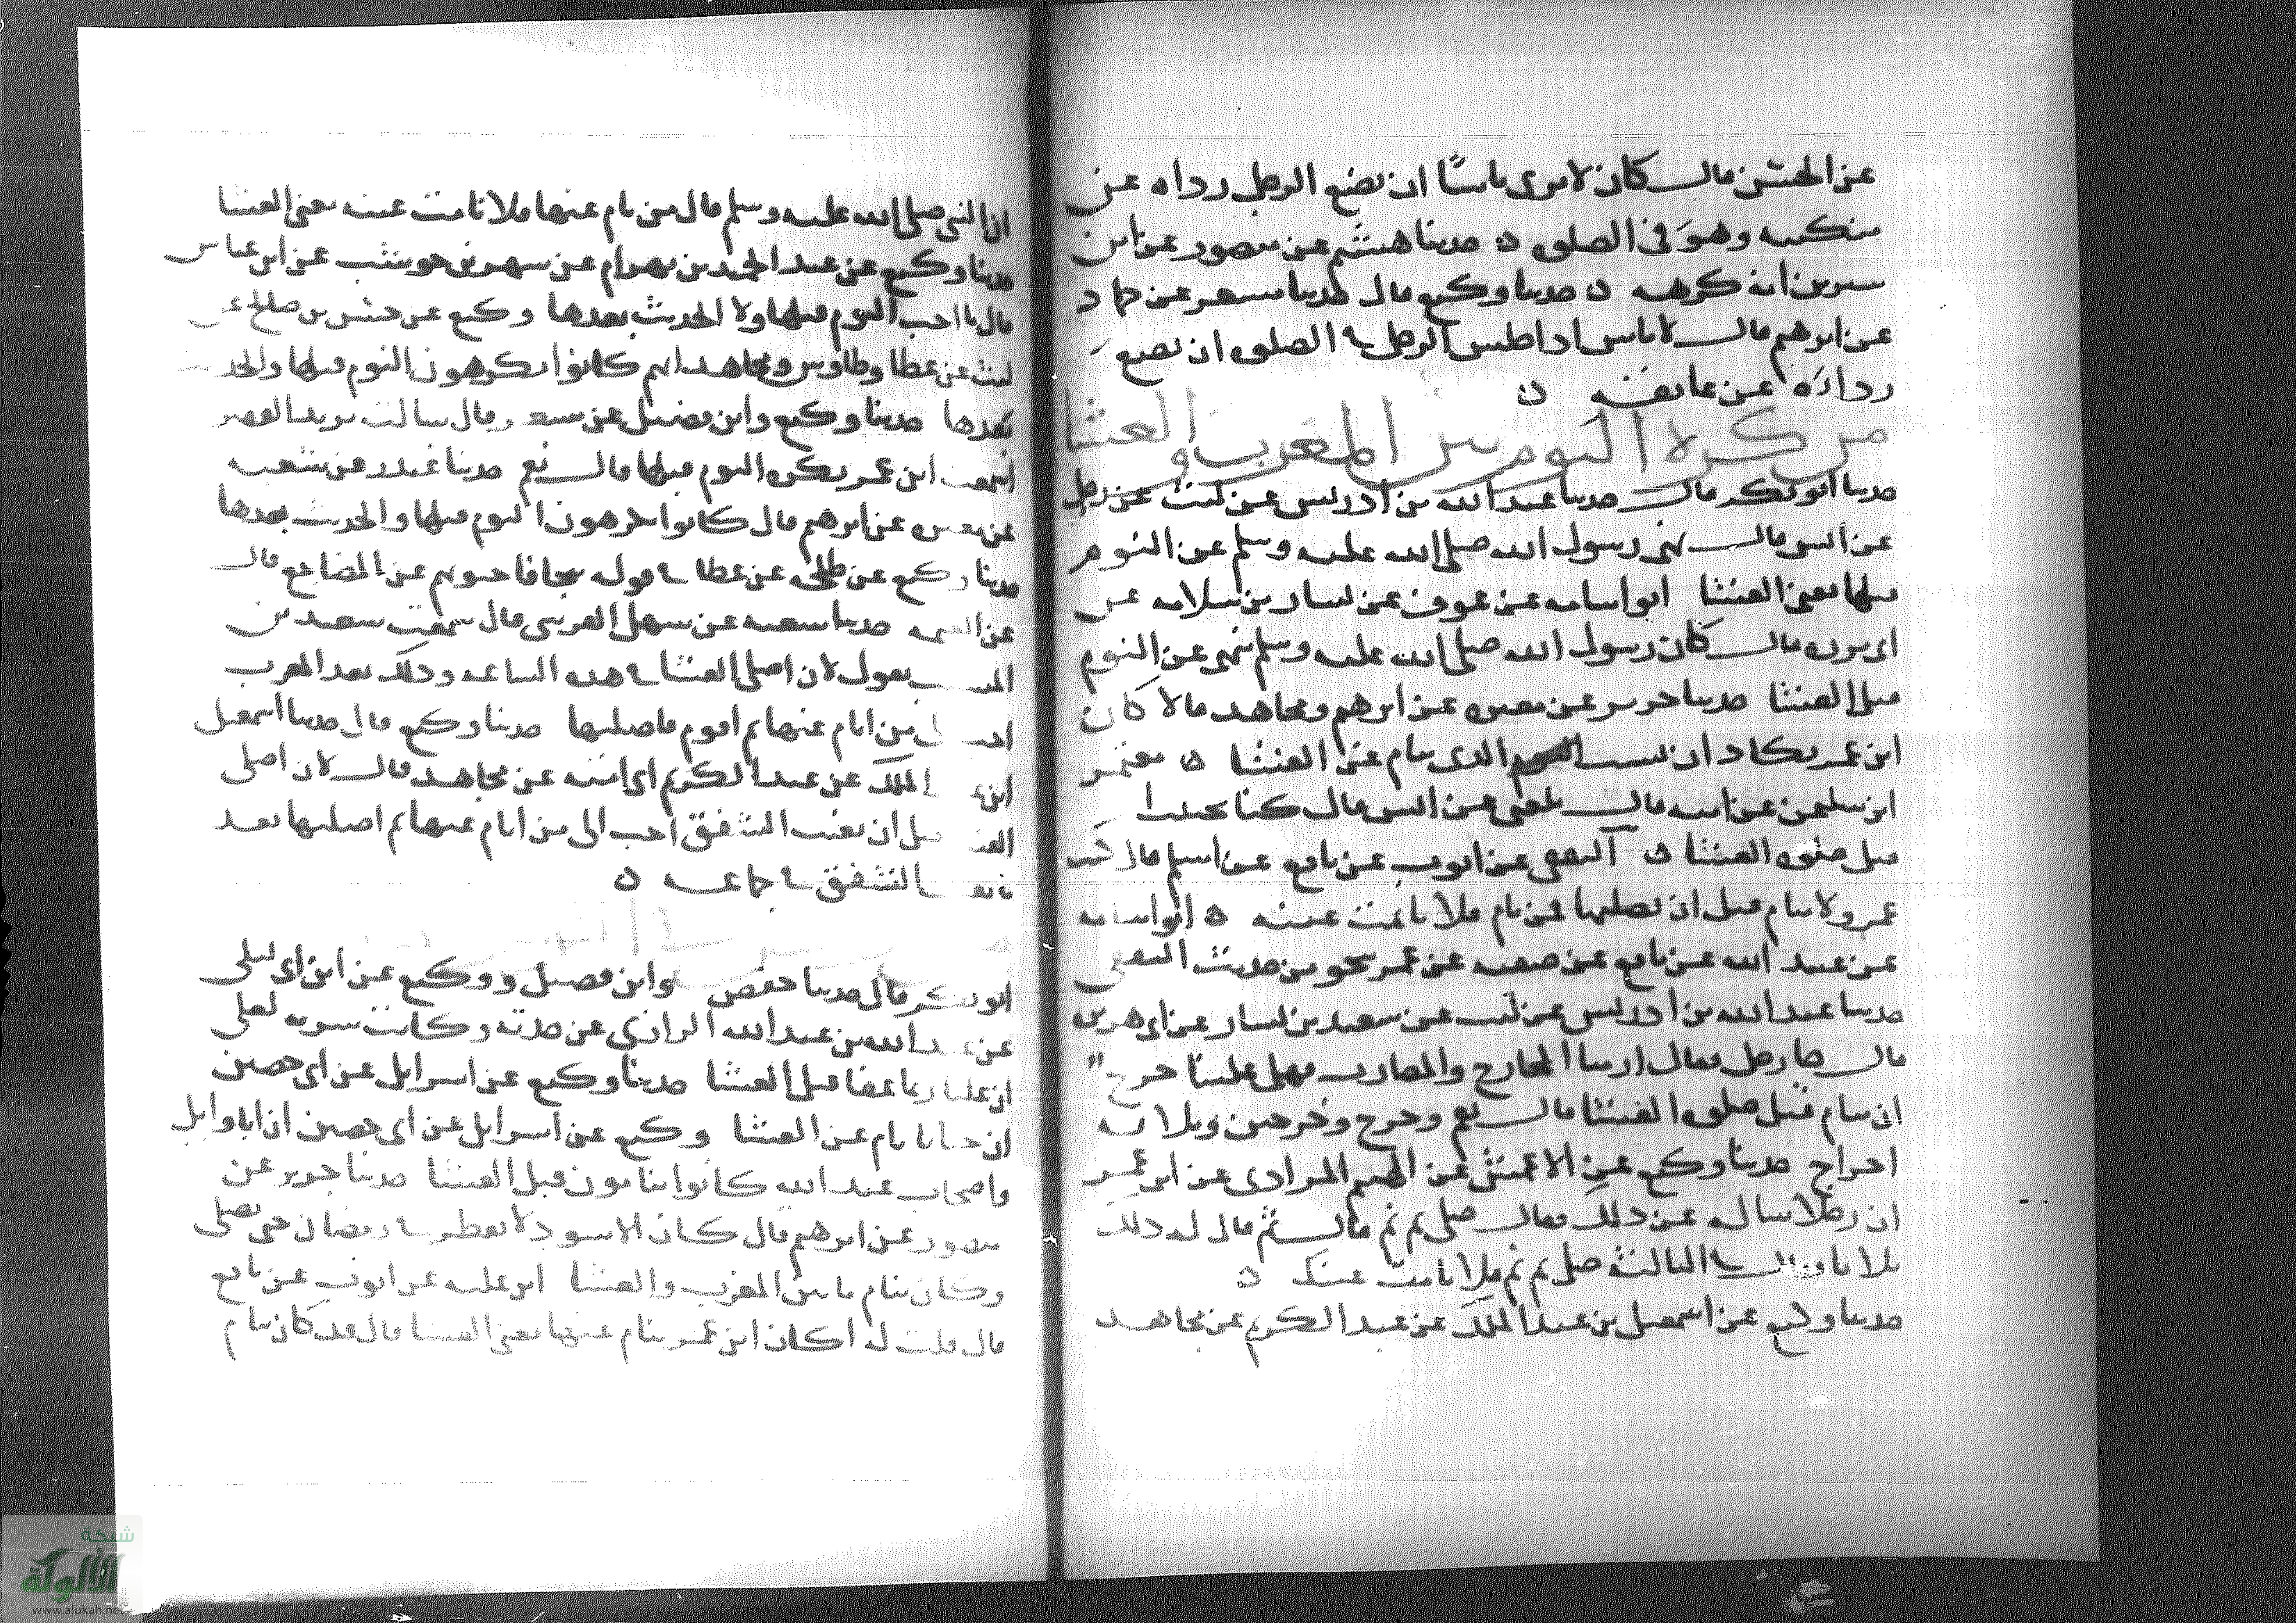 عن الحسن قال كان لا يرى باسا ان يضع الرجل رداه عن
منكبيه وهو في الصلوه حدثنا هشيم عن منصور عن ابن
سيرين انه كرهه حدثنا وكيع قال حدثنا مسعر عن حماد
عن ابرهيم قال لا باس اذا جلس الرجل في الصلوه ان يضع
رداءه عن عاتقه
من كره النوم بين المغرب والعشا
حدثنا ابو بكر قال حدثنا عبد الله بن ادريس عن ليث عن رجل
عن انس قال نهى رسول الله صلى الله عليه وسلم عن النوم
قبلها يعني العشا ابو اسامه عن عوف عن سيار بن سلامه عن
ابي برزه قال كان رسول الله صلى الله عليه وسلم ينهى عن النوم
قبل العشا حدثنا جرير عن مغيره عن ابرهيم ومجاهد قالا كان
ابن عمر يكاد ان يسب الذي ينام عن العشا معتمر
ابن سليمن عن ابيه قال بلغني عن انس قال كنا نجتنب
قبل صلوه العشا الثقفي عن ايوب عن نافع عن اسلم قال كتب
عمر ولا ينام قبل ان يصليها فمن نام فلا نامت عينه ابو اسامه
عن عبيد الله عن نافع عن صفيه عن عمر بنحو من حديث الثقفي
حدثنا عبد الله بن ادريس عن ليث عن سعيد بن يسار عن ابي هريره
قال جا رجل فقال ارسا المخارج والمضارب فهل علينا حرج
ان ننام قبل صلوه العشا قال نعم وحرج وحرجين وثلاثه
احراج حدثنا وكيع عن الاعمش عن الهيثم المرادي عن ابن عمر
ان رجلا ساله عن ذلك فقال صل ثم نم قال ثم قال له ذلك
ثلاثا وقال في الثالثه صل ثم نم فلا نامت عينك
حدثنا وكيع عن اسمعيل بن عبد الملك عن عبد الكريم عن مجاهد
ان النبي صلى الله عليه وسلم قال من نام عنها فلا نامت عينه يعني العشا
حدثنا وكيع عن عبد الحميد بن بهرام عن شهر بن حوشب عن ابن عباس
قال ما احب النوم قبلها ولا الحديث بعدها وكيع عن حسن بن صالح عن
ليث عن عطا وطاوس ومجاهد انهم كانوا يكرهون النوم قبلها والحديث
بعدها حدثنا وكيع وابن فضيل عن قال سالت يزيد الفقير
اسمعت ابن عمر يكره النوم قبلها قال نعم حدثنا غندر عن شعبه
عن مغيره عن ابرهيم قال كانوا يكرهون النوم قبلها والحديث بعدها
حدثنا وكيع عن طلحه عن عطا في قوله تتجافا جنوبهم عن المضاجع قال
عن العتمه حدثنا شعبه عن سهل القرشي قال سمعت سعيد بن
المسيب يقول لان اصلي العشا في هذه الساعه وذلك بعد المغرب
احب الي من ان انام عنها ثم اقوم فاصليها حدثنا وكيع قال حدثنا اسمعيل
ابن عبد الملك عن عبد الكريم ابي اميه عن مجاهد قال لان اصلي
العشا قبل ان يغيب الشفق احب الي من ان انام عنها ثم اصليها بعد
ما يغيب الشفق في جماعه
ابو بكر قال حدثنا حفص وابن فضيل ووكيع عن ابن ابي ليلى
عن عبد الله بن عبد الله الرازي عن جدته وكانت سريه لعلي
ان عليا ربما غفا قبل العشا حدثنا وكيع عن اسرايل عن ابي حصين
ان خبابا نام عن العشا وكيع عن اسرايل عن ابي حصين ان ابا وايل
واصحاب عبد الله كانوا ينامون قبل العشا حدثنا جرير عن
منصور عن ابرهيم قال كان الاسود لا يفطر في رمضان حتى يصلي
وكان ينام ما بين المغرب والعشا ابن عليه عن ايوب عن نافع
قال قلت له اكان ابن عمر ينام عنها يعني العشا قال قد كان ينام
شبكة
الألوكة
www.alukah.net